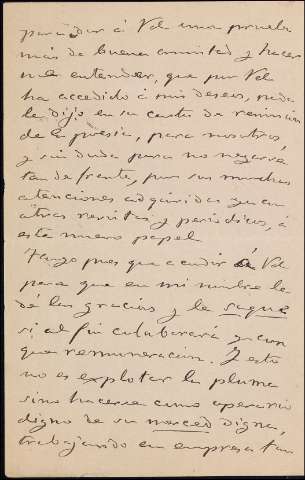 para dar á Vd una prueba
más de buena amistad y hacer
me entender, que por Vd
ha accedido á mis deseos, nada
le dijo en su carta de remisión
de la poesía, para nosotros,
y sin duda para no negarse
tan de frente, por sus muchas
atenciones adquiridas ya en
otras revistas y periodicos, á
este nuevo papel.
Tengo pues que acudir á Vd
para que en mi nombre le
dé las gracias y le saque
si al fin colaborará y con
que remuneracion. Y esto
no es explotar la pluma
sino hacerse como operario
digno de su merced digna,
trabajando en empresa tan